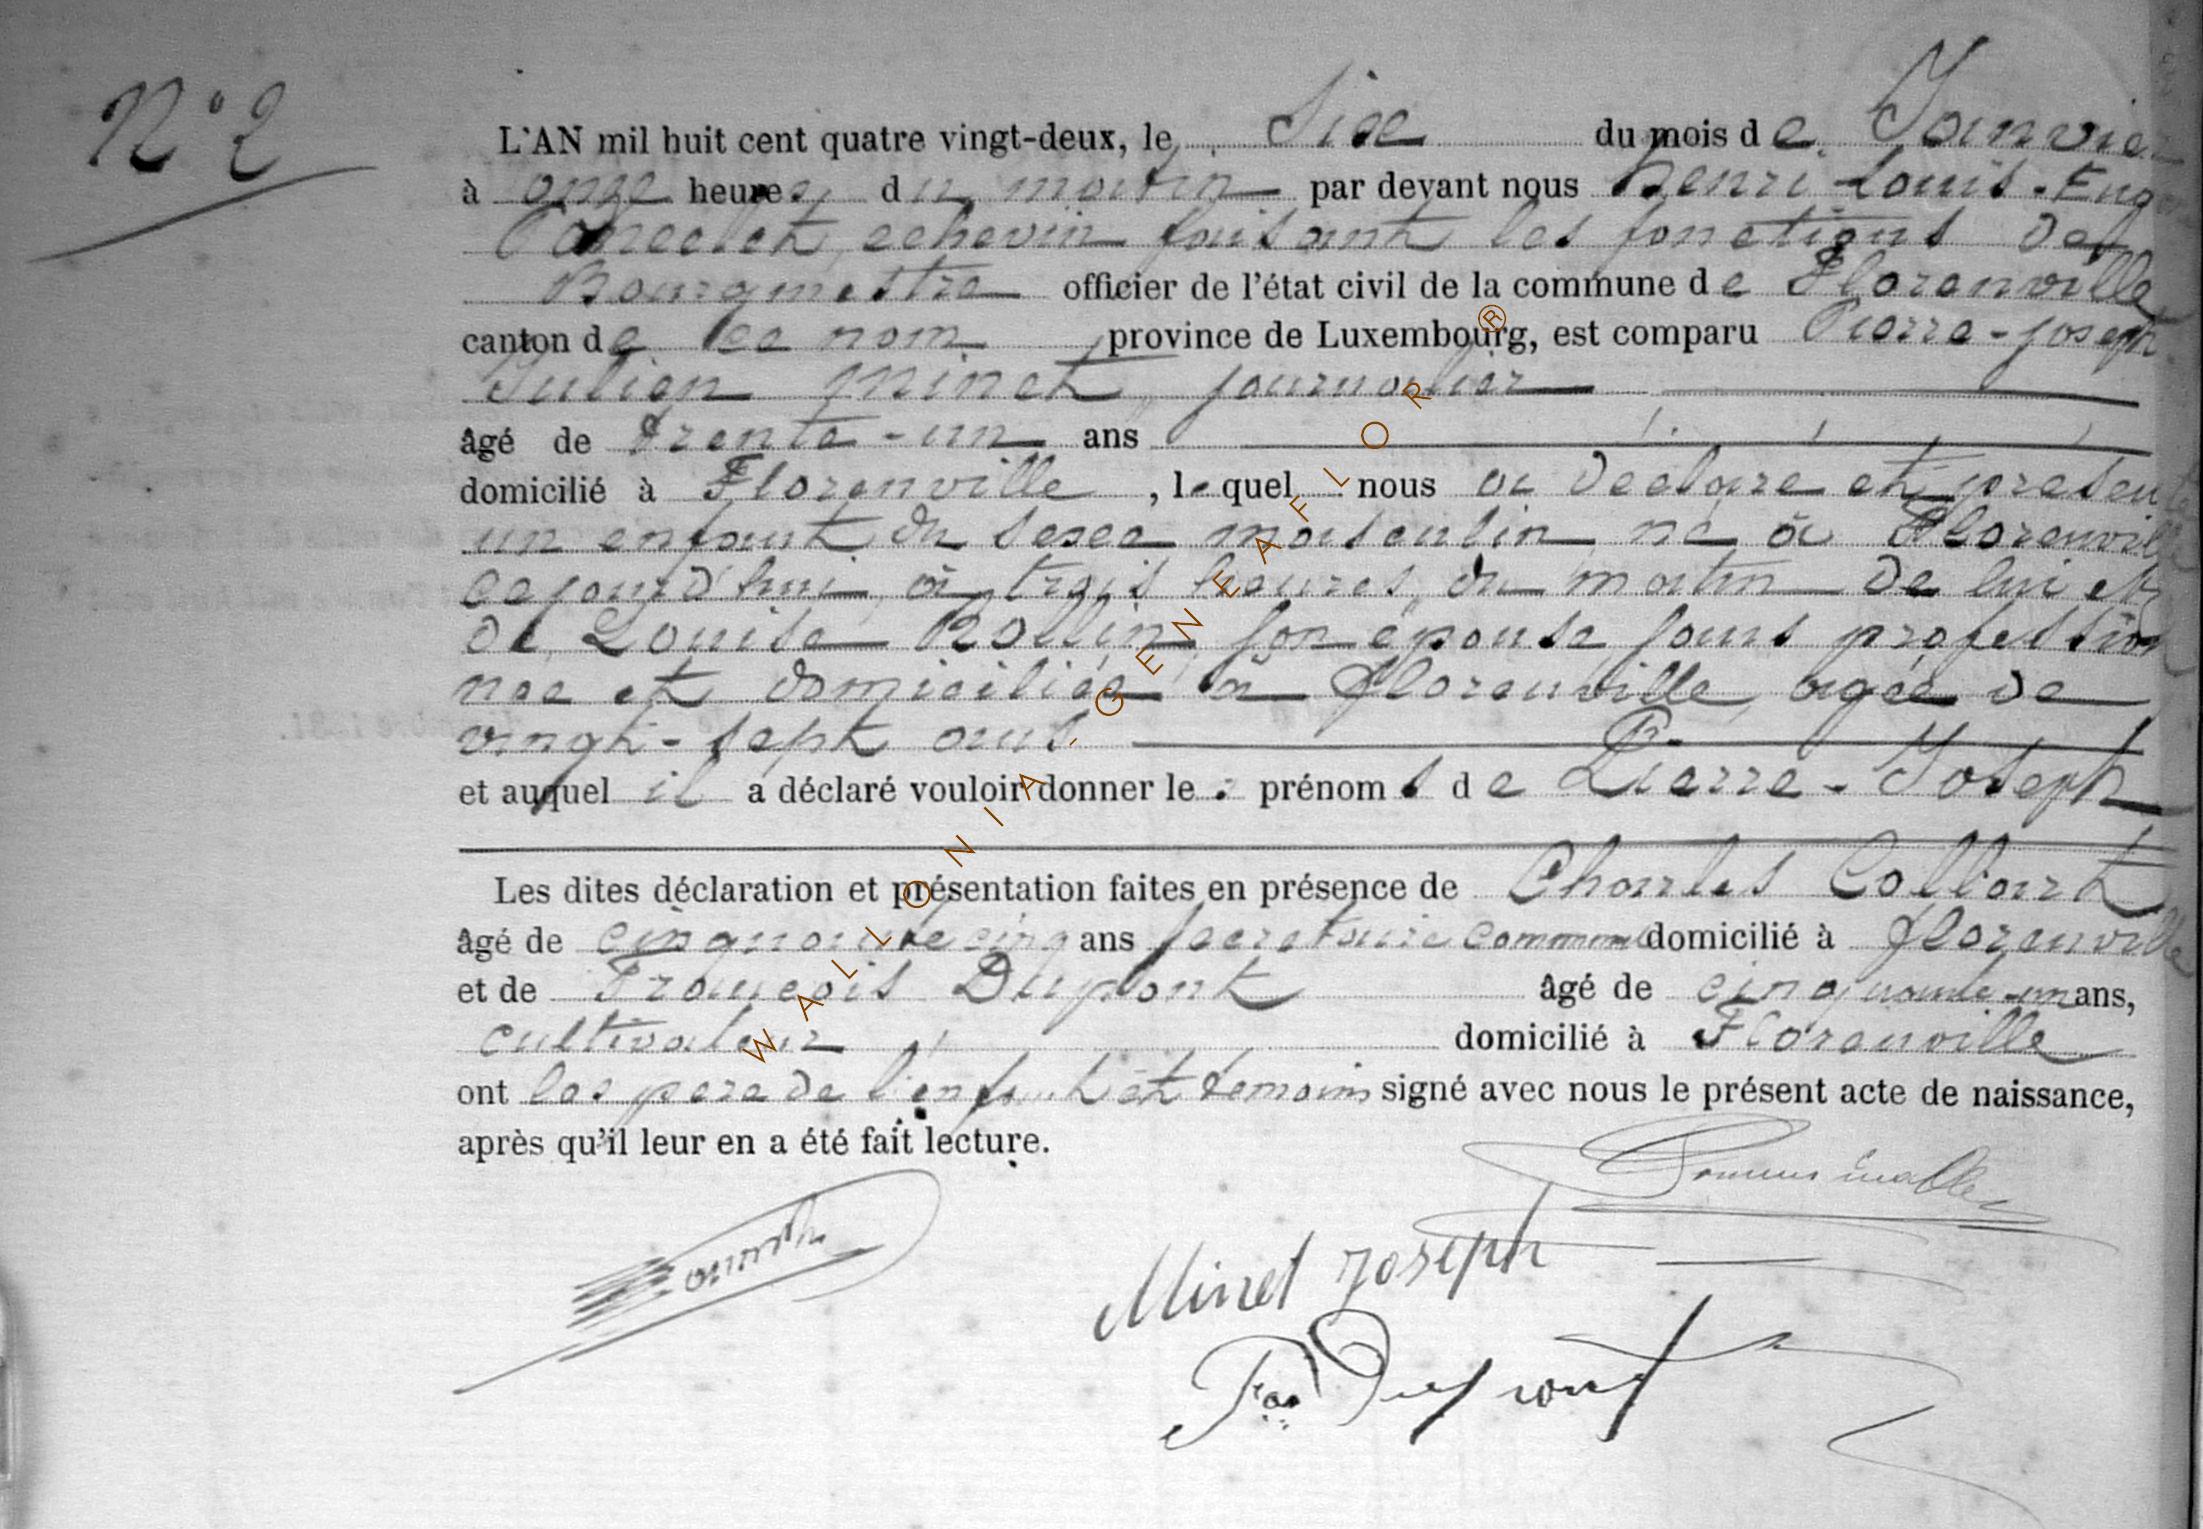 N° 2
L'AN mil huit cent quatre vingt-deux, le Six du mois de Janvier
à onze heures du matin par devant nous Henri-Louis-Eug
échevin faisant les fonctions de
Bourgmestre officier de l'état civil de la commune de Florenville
canton de ce nom province de Luxembourg, est comparu Pierre-Joseph
Julien Minet, journalier
âgé de trente-un ans
domicilié à Florenville, lequel nous a déclaré et présenté
un enfant du sexe masculin né à Florenville
cejourd'hui, à trois heures du matin de lui et
de Louise Rollin, son épouse sans profession
née et domiciliée à Florenville, agée de
vingt-sept ans.
et auquel il a déclaré vouloir donner les prénoms de Pierre-Joseph
Les dites déclaration et présentation faites en présence de Charles Collart
âgé de cinquante cinq ans secrétaire communal domicilié à Florenville
et de François Dupont âgé de cinquante-un ans,
cultivateur domicilié à Florenville
ont les pere de l'enfant et temoins signé avec nous le présent acte de naissance,
après qu'il leur en a été fait lecture.
Minet Joseph
Fçois Dupont
WALLONIA-GENEAFLOR®